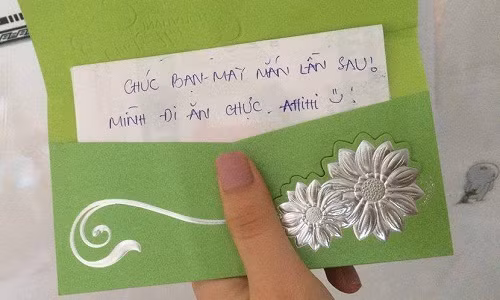 CHÚC BẠN MAY MẮN LẦN SAU!
MÌNH ĐI ĂN CHỰC. AHIHI!